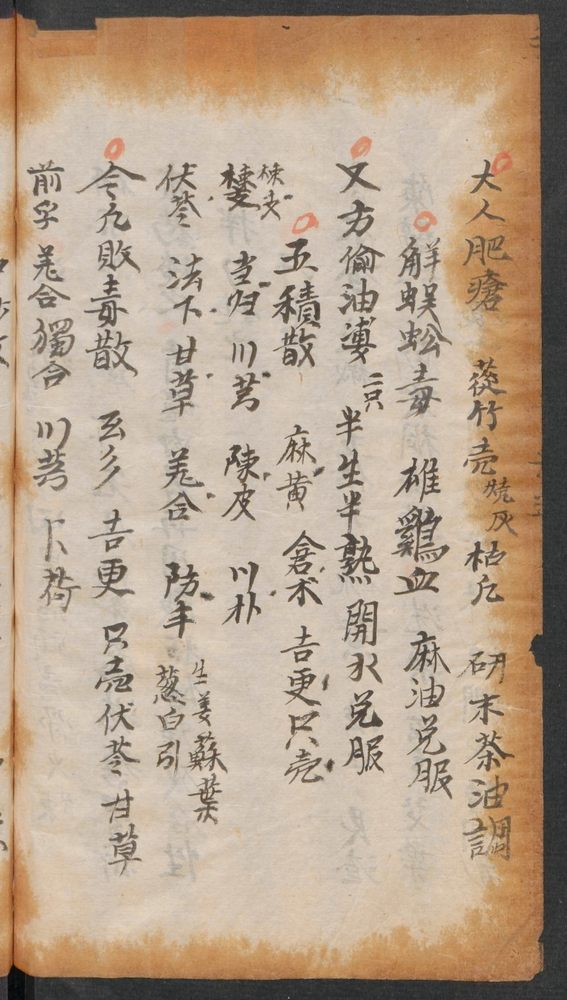 大人肥瘡 茷竹壳燒灰 枯凡 研末茶油調
解蜈蚣毒 雄鷄血 麻油兑服
又方偷油婆二只半生半熟開水兑服
五積散 麻黄 倉术 吉更只壳
棟支 当归川芎 陳皮 川朴
伏苓 法下甘草 羌合 防丰 生姜蘇葉葱白引
令凢敗毒散 云多 吉更 只壳伏苓甘草
前孚羌合獨合 川芎 卜荷